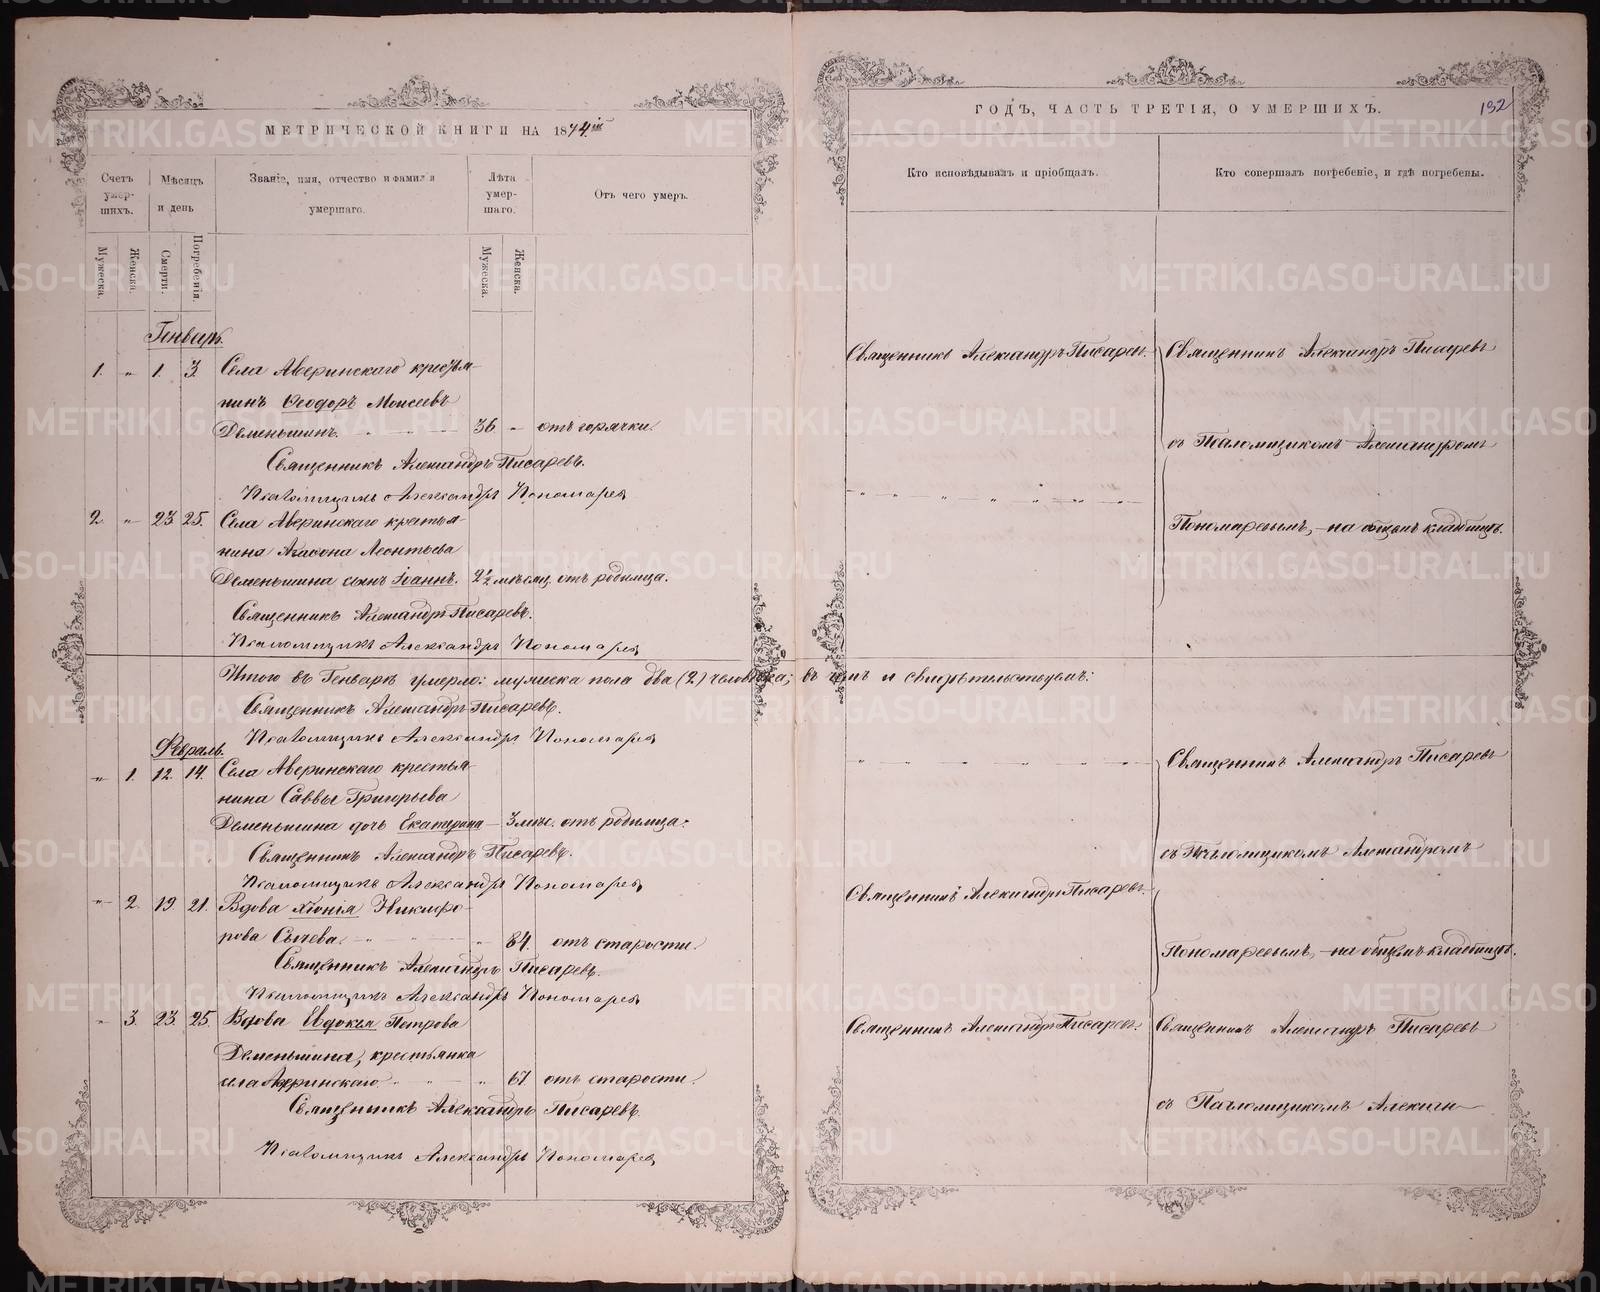 МЕТРИЧЕСКОЙ КНИГИ НА 1874й
Счетъ умер-шихъ.
Мѣсяцъ и день
Званіе, имя, отчество и фамилія умершаго.
Лѣта умер-шаго.
Отъ чего умеръ.
Мужеска.
Женска.
Смерти.
Погребенія.
Мужеска.
Женска.
Генварь.
1. " 1. 3. Села Аверинскаго крестья-
нинъ Ѳеодоръ Моисеевъ
Деменьшинъ. 36 " отъ горячки.
Священникъ Александръ Писаревъ.
Псаломщикъ Александръ Пономарев
2. " 23 25. Села Аверинскаго крестья-
нина Агаѳона Леонтьева
Деменьшина сынъ Іоаннъ. 2½ мѣсяц. отъ родимца.
Священникъ Александръ Писаревъ.
Псаломщикъ Александръ Пономарев
Итого въ Генварѣ умерло: мужеска пола два (2) человѣка; въ чемъ и свидѣтельствуемъ:
Священникъ Александръ Писаревъ.
Псаломщикъ Александръ Пономарев
Февраль.
" 1. 12. 14. Села Аверинскаго крестья-
нина Саввы Григорьева
Деменьшина дочь Екатерина 3 мѣс. отъ родимца.
Священникъ Александръ Писаревъ.
Псаломщикъ Александръ Пономарев
" 2. 19. 21. Вдова Хіонія Никифо-
рова Сычева. " 84. отъ старости.
Священникъ Александръ Писаревъ.
Псаломщикъ Александръ Пономарев
" 3. 23. 25. Вдова Евдокія Петрова
Деменьшина, крестьянка
села Аверинскаго " 67 отъ старости.
Священникъ Александръ Писаревъ.
Псаломщикъ Александръ Пономарев
ГОДЪ, ЧАСТЬ ТРЕТІЯ, О УМЕРШИХЪ.
132
Кто исповѣдывалъ и пріобщалъ.
Кто совершалъ погребеніе, и гдѣ погребены.
Священникъ Александръ Писарев.
Священникъ Александръ Писаревъ
съ Псаломщикомъ Александромъ
Пономаревымъ, на общемъ кладбищѣ.
Священникъ Александръ Писаревъ
съ Псаломщикомъ Александромъ
Священникъ Александръ Писаревъ.
Пономаревымъ, на общемъ кладбищѣ.
Священникъ Александръ Писарев.
Священникъ Александръ Писаревъ
съ Псаломщикомъ Алексан-
METRIKI.GASO-URAL.RU